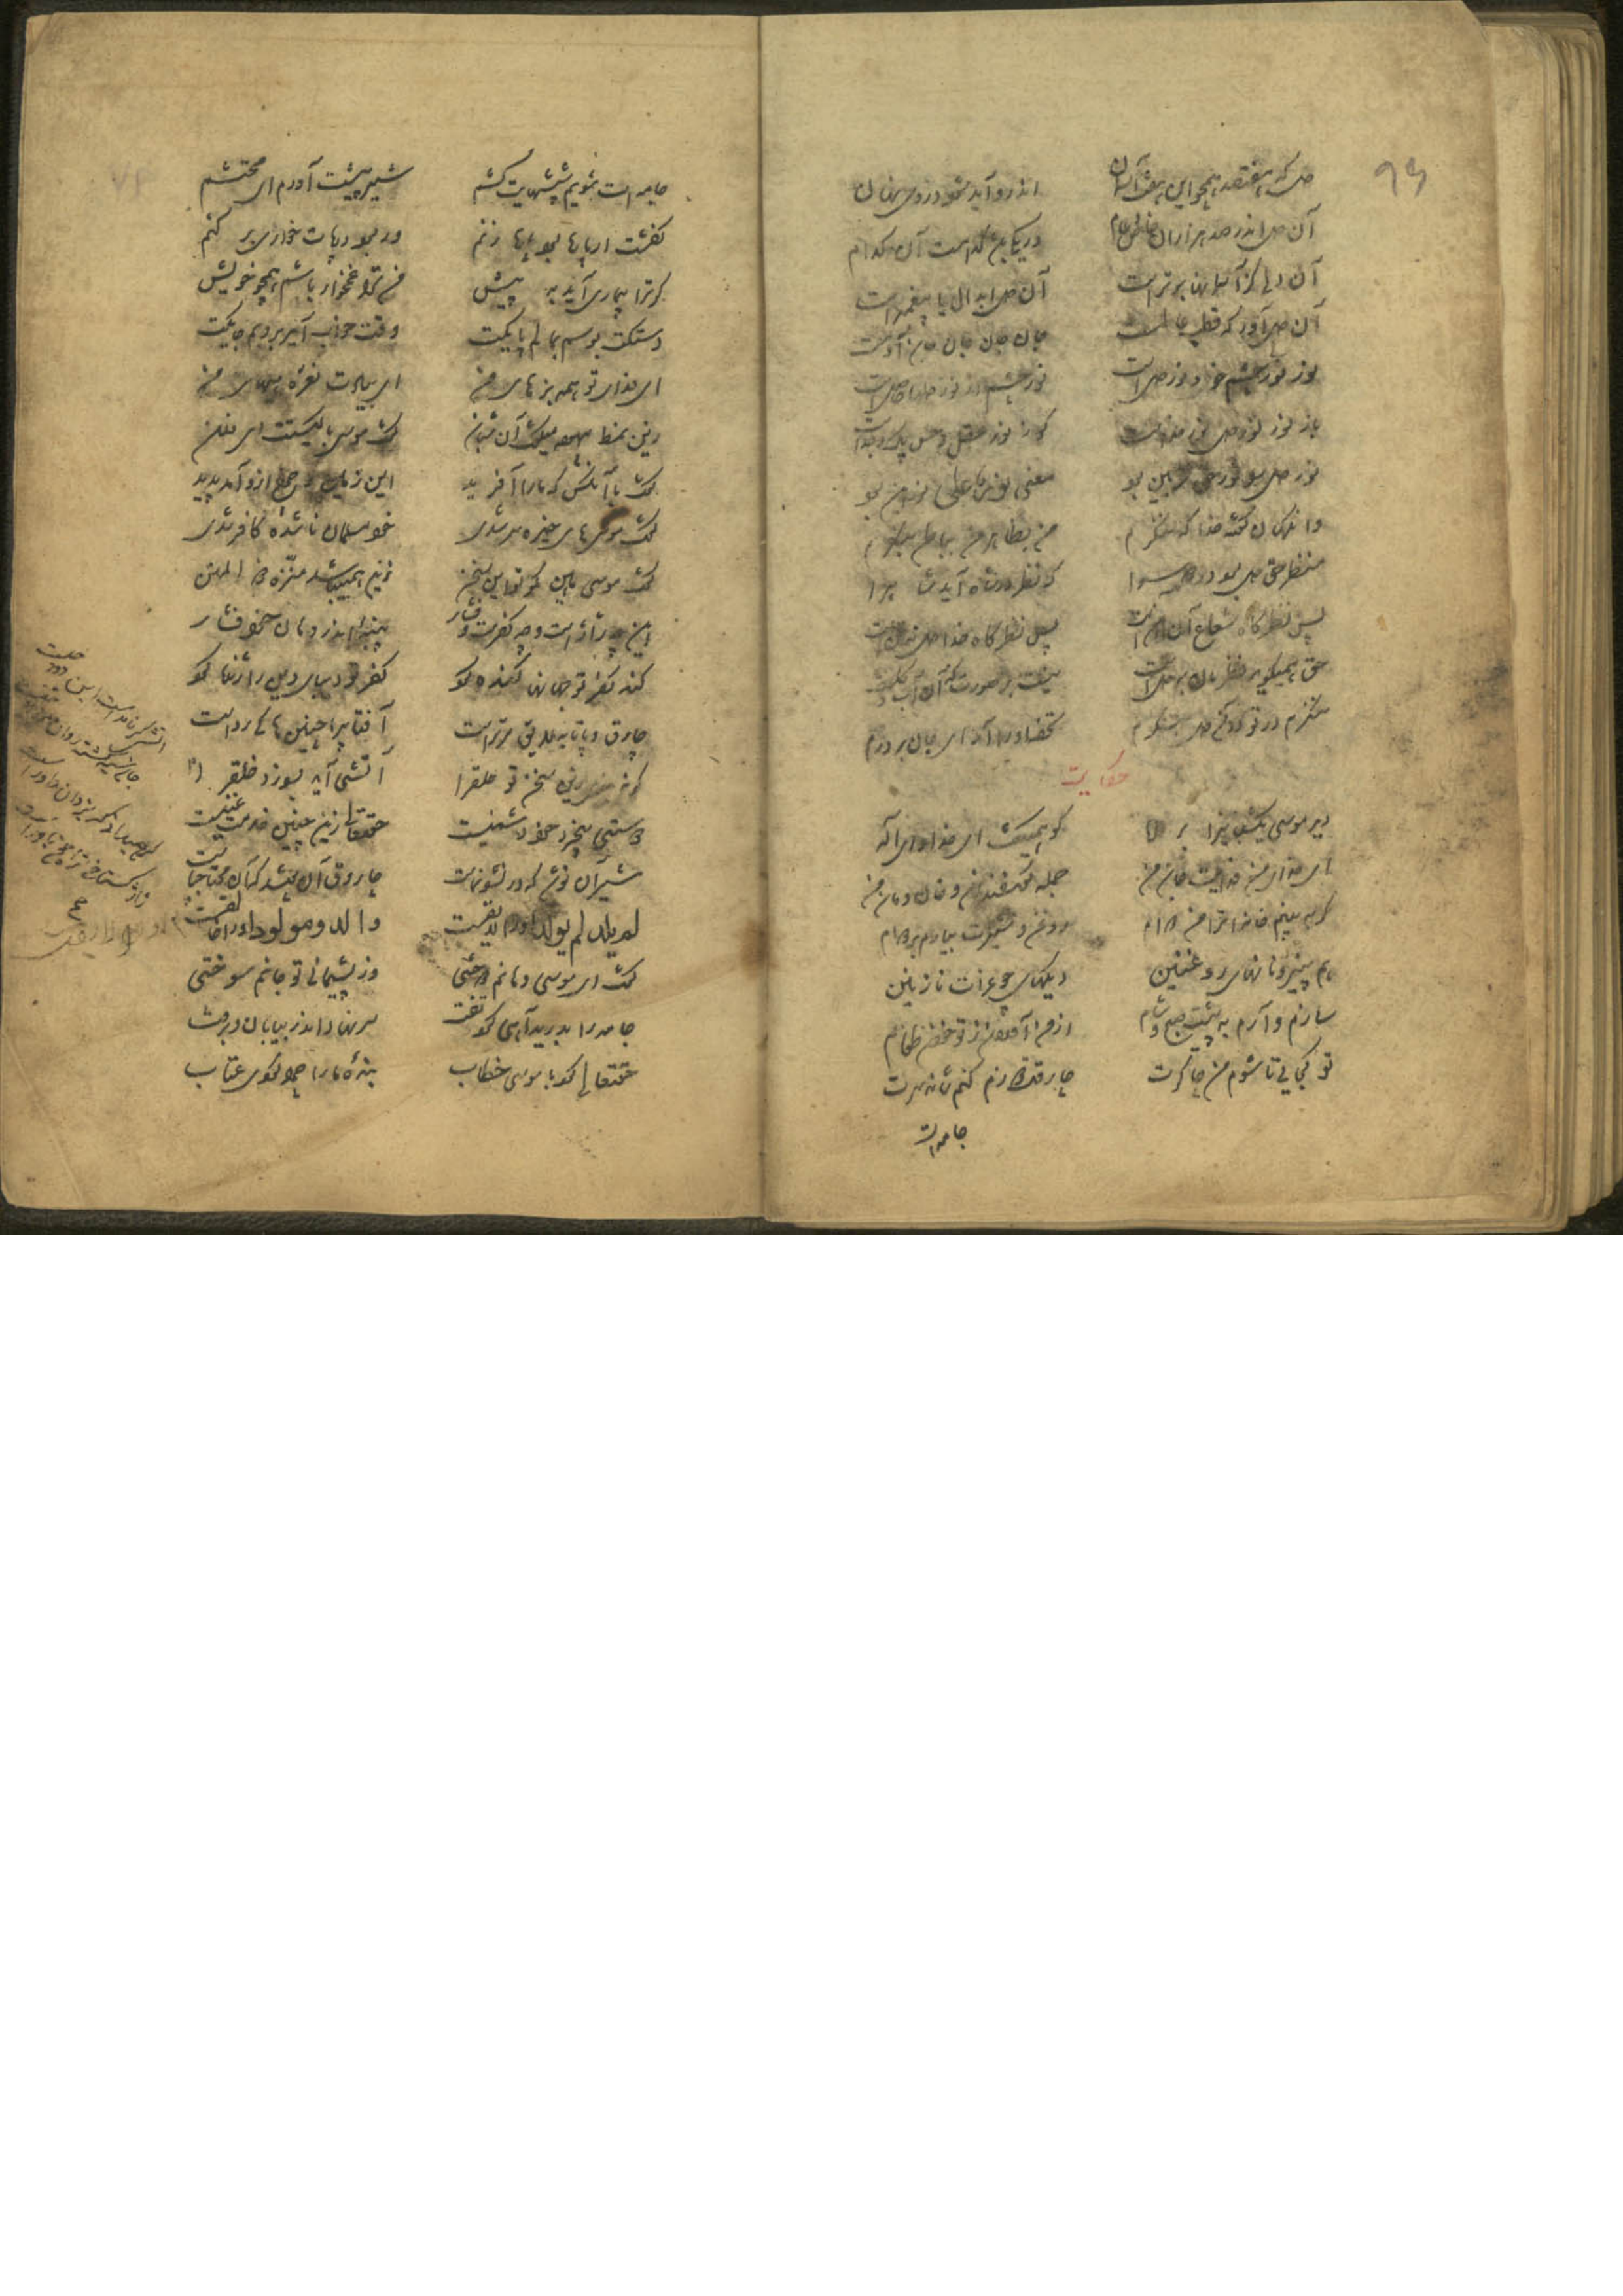 دل که هفتصد همچو این هفت آسمان
اندرو آید شود در وی نهان
آن دل اندر صد هزاران خاص و عام
در یکی باشد کدامست آن کدام
آن دلی کز آسمانها برترست
آن دل ابدال یا پیغمبرست
آن دل آور که قطب عالمست
جان جان جان جان آدمست
نور نور چشم خود نور دلست
نور چشم از نور دلها حاصلست
باز نور نور دل نور خداست
کو ز نور عقل و حس پاک و جداست
نور حق بود
معنی نور علی نور این بود
من بظاهر من بباطن بنگرم
منظر حق دل بود در دو سرا
که نظر در شاهد آید شاه را
پس نظرگاه شعاع آن آهنست
پس نظرگاه خدا دل نه تنست
حق همیگوید نظرمان بر دلست
نیست بر صورت که آن آب و گلست
ننگرم در تو در آن دل بنگرم
تحفه او را آر ای جان بر درم
حکایت
دید موسی یک شبانی را براه
کو همیگفت ای خدا و ای اله
ای خدای من فدایت جان من
جمله فرزندان و خان و مان من
گر ببینم خانه‌ات را من دوام
روغن و شیرت بیارم صبح و شام
هم پنیر و نانهای روغنین
دیگهای جغرات نازنین
سازم و آرم به پیشت صبح و شام
از من آوردن ز تو خوردن طعام
تو کجایی تا شوم من چاکرت
چارقت دوزم کنم شانه سرت
جامه‌ات
جامه‌ات شویم شپشهایت کشم
شیر پیشت آورم ای محتشم
ور ترا بیماریی آید به پیش
من ترا غمخوار باشم همچو خویش
دستکت بوسم بمالم پایکت
وقت خواب آید بروبم جایکت
ای فدای تو همه بزهای من
ای بیادت هی هی و هیهای من
زین نمط بیهوده میگفت آن شبان
گفت موسی با کیستت ای فلان
گفت با آنکس که ما را آفرید
این زمین و چرخ ازو آمد پدید
گفت موسی های خیره سر شدی
خود مسلمان ناشده کافر شدی
این چه ژاژست و چه کفرست و فشار
پنبه‌ای اندر دهان خود فشار
گند کفر تو جهان را گنده کرد
کفر تو دیبای دین را ژنده کرد
چارق و پاتابه لایق مر تراست
آفتابی را چنینها کی رواست
گر نبندی زین سخن تو حلق را
آتشی آید بسوزد خلق را
دوستی بیخرد خود دشمنیست
حق تعالی زین چنین خدمت غنیست
شیر آن نوشد که در نشو و نماست
چارق آن پوشد که آن محتاج پاست
لم یلد لم یولد او را لایقست
والد و مولود را او خالقست
گفت ای موسی دهانم دوختی
وز پشیمانی تو جانم سوختی
جامه را بدرید آهی کرد تفت
سر نهاد اندر بیابان و برفت
حق تعالی کرد با موسی خطاب
بنده ما را چرا کردی عتاب
آتشی گر نامدست این دود چیست
جان سیه گشته روان مردود چیست
گر همی دانی که یزدان داورست
ژاژ و گستاخی ترا چون باورست